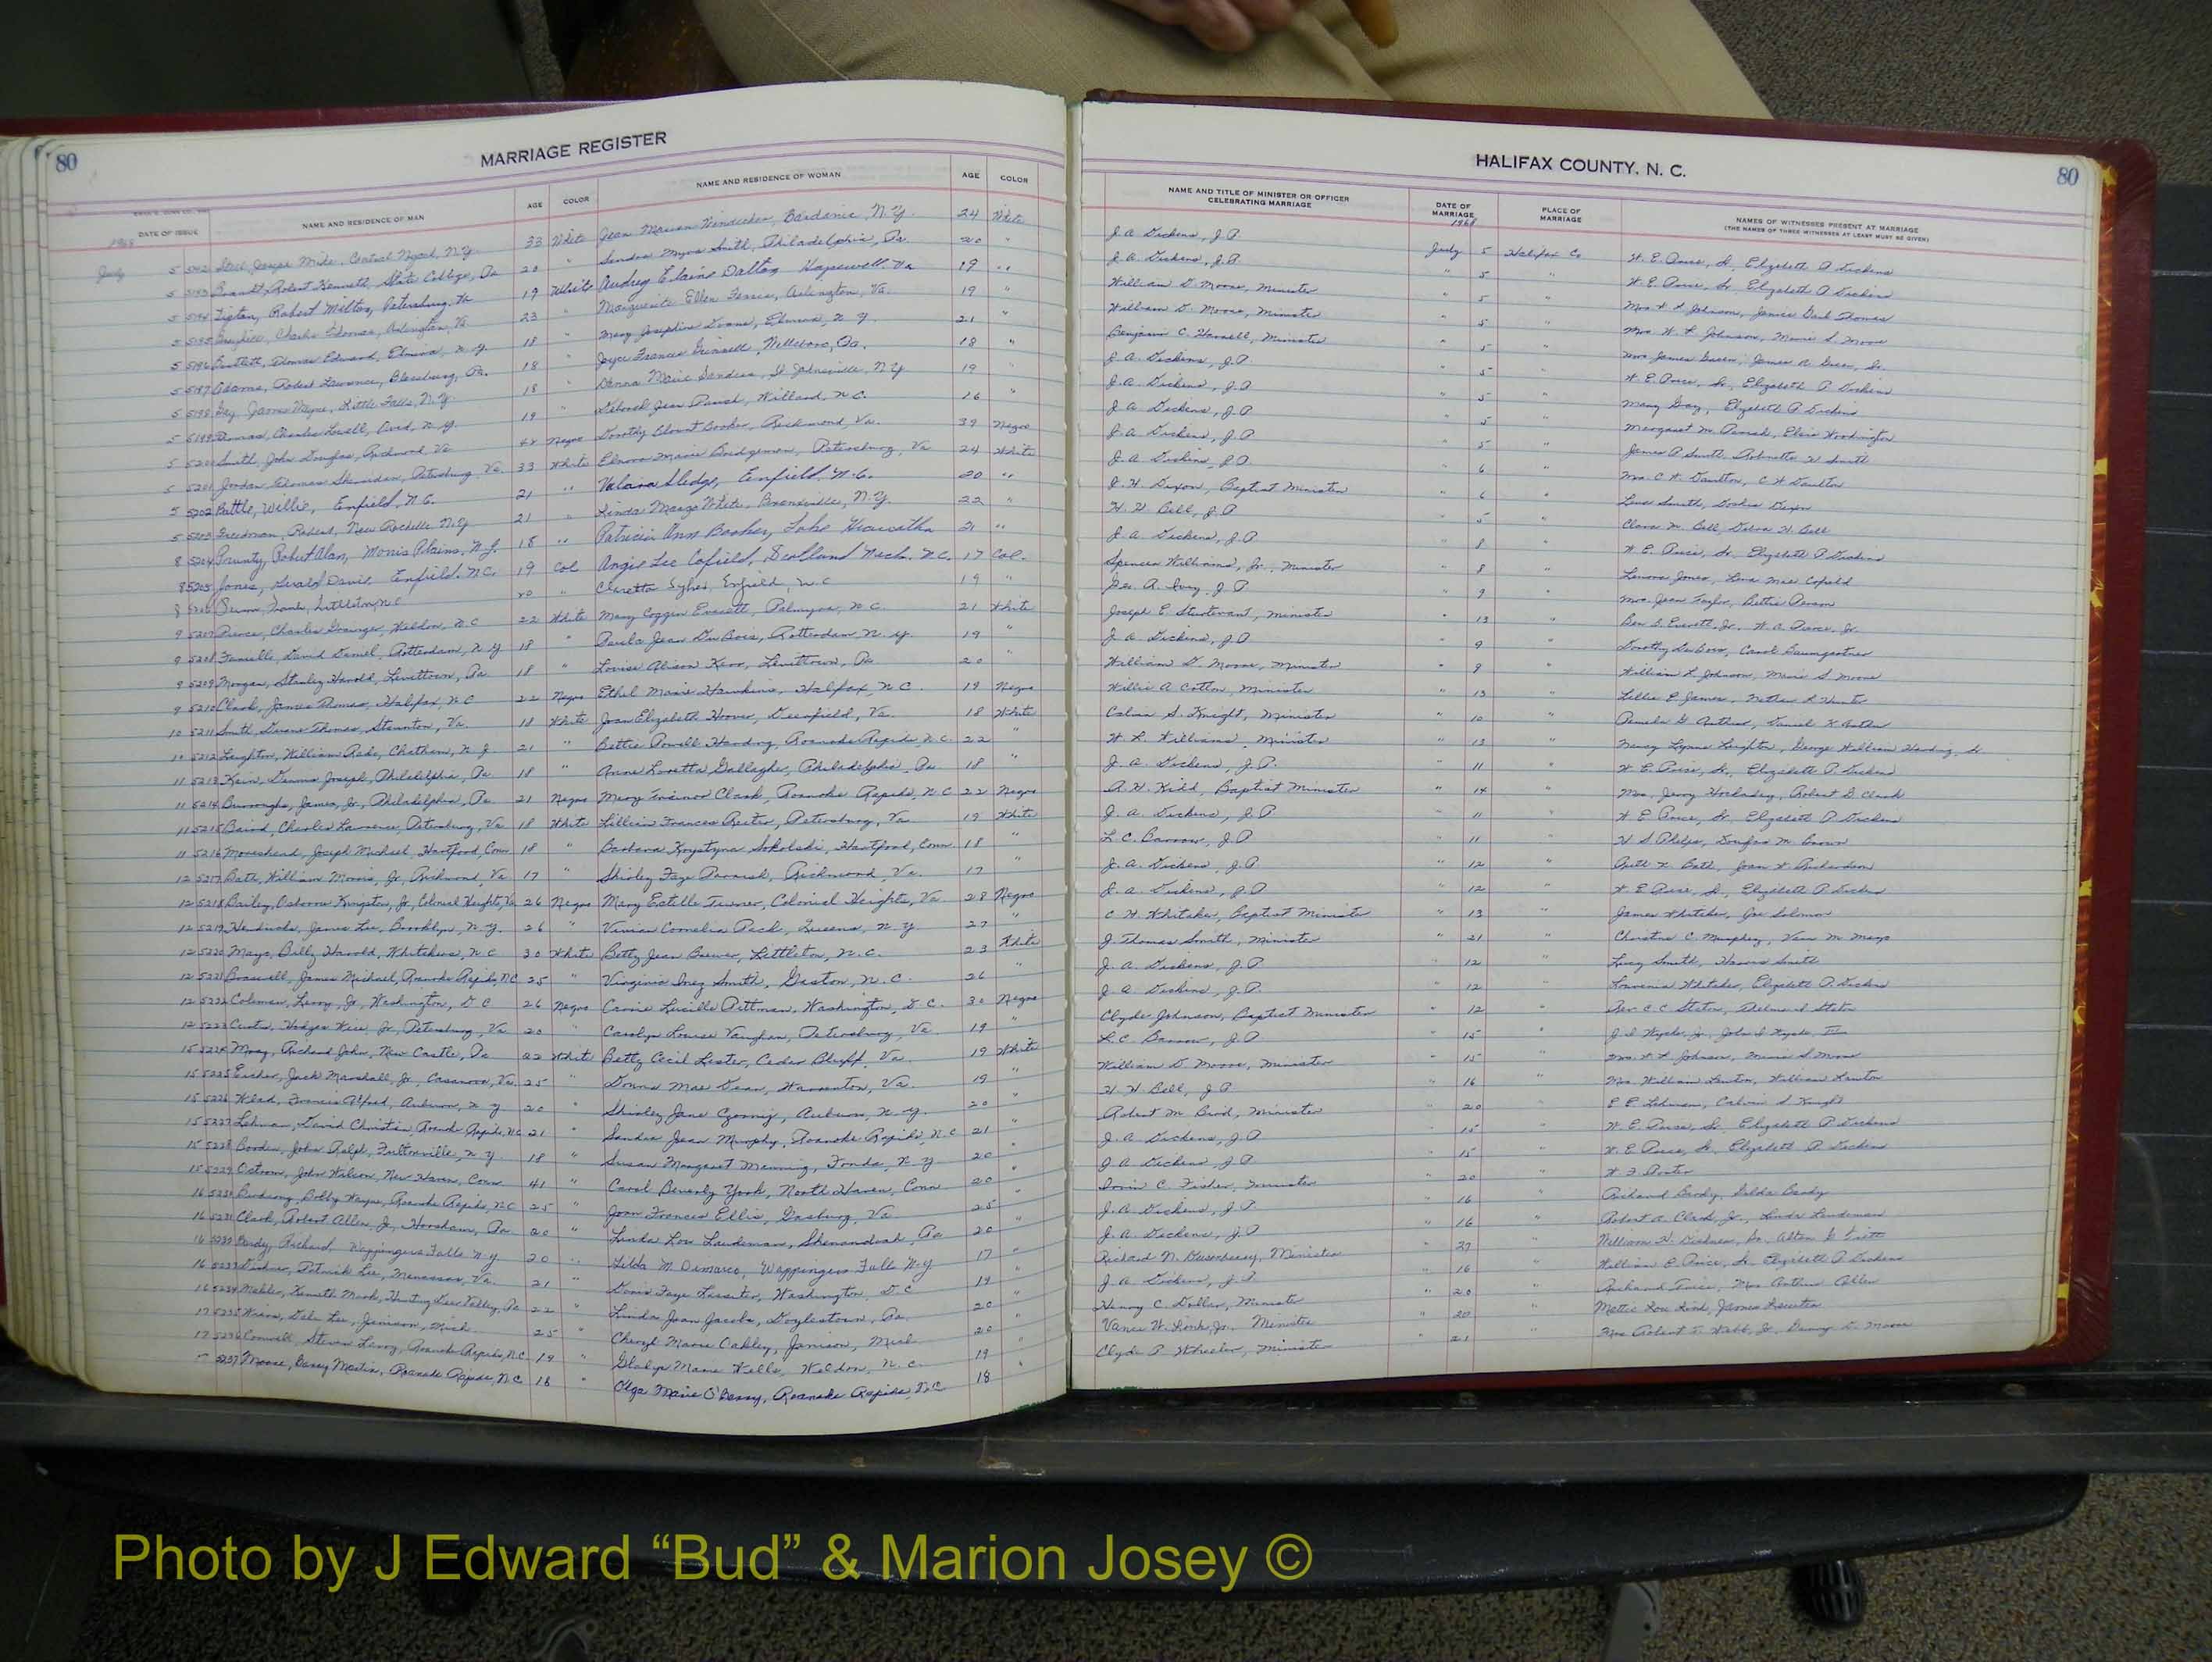 80
MARRIAGE REGISTER
DATE OF ISSUE NAME AND RESIDENCE OF MAN AGE COLOR NAME AND RESIDENCE OF WOMAN AGE COLOR
1968
July 5 33 White Jean N.Y. 24 White
5 Robert Kenneth, State College, Pa 20 " Sandra Myra Smith, Philadelphia, Pa. 20 "
5 Robert Milton, Petersburg, Va 19 White Audrey Elaine Dalton Hopewell, Va 19 "
5 Charles Thomas, Arlington, Va 23 " Marguerite Ellen Arlington, Va. 19 "
5 Thomas Edward, Elmira, N.Y. 18 " Mary Josephine Elmira, N.Y. 21 "
5 5197 Adams, Robert Lawrence, Blossburg, Pa. 18 " Joyce Frances Pa. 18 "
5 5198 James Wayne, Little Falls, N.Y. 18 " Donna Marie Sanders, St Johnsville, N.Y. 19 "
5 5199 Thomas, Charles Lowell, N.Y. 19 " Deborah Jean Parish, Willard, N.C. 16 "
5 5200 Smith, John Douglas, Richmond Va Negro Dorothy Blount Booker, Richmond, Va. 39 Negro
5 5201 Jordan, Thomas Petersburg, Va. 33 White Marie Bridgeman, Petersburg, Va 24 White
5 5202 Battle, Willie, Enfield, N.C. 21 " Sledge, Enfield, N.C. 20 "
5 5203 Freedman, Robert, New Rochelle N.Y 21 " Linda Margo White, Bronxville, N.Y. 22 "
8 5204 Prunty, Robert Alan, Morris Plains, N.J. 18 " Patricia Ann Booker, Lake Hiawatha 21 "
8 5205 Jones, Davis, Enfield, N.C. 19 Col Angie Lee Cofield, Scotland Neck, N.C. 17 Col.
8 Frank, Littleton, N.C 20 " Claretta Sykes, Enfield, N.C 19 "
9 5207 Pierce, Charles Grainger, Weldon, N.C 22 White Mary Coggin Everett, Palmyra, N.C. 21 White
9 5208 David Daniel, Rotterdam, N.Y 18 " Paula Jean DuBois, Rotterdam, N.Y. 19 "
9 5209 Morgan, Stanley Harold, Levittown, Pa 18 " Louise Alison Kerr, Levittown, Pa 20 "
9 5210 Clark, James Thomas, Halifax, N.C 22 Negro Ethel Marie Hawkins, Halifax, N.C. 19 Negro
10 5211 Smith, Duane Thomas, Staunton, Va. 18 White Joan Elizabeth Hoover, Va. 18 White
10 5212 Leighton, William Chatham, N.J. 21 " Bettie Powell Harding, Roanoke Rapids, N.C. 22 "
11 5213 Kain, Dennis Joseph, Philadelphia, Pa 18 " Anne Loretta Gallagher, Philadelphia, Pa 18 "
11 5214 Burroughs, James, Jr, Philadelphia, Pa 21 Negro Mary Clark, Roanoke Rapids, N.C 22 Negro
11 5215 Baird, Charles Lawrence, Petersburg, Va 18 White Lillian Frances Petersburg, Va 19 White
11 5216 Morehead, Joseph Michael, Hartford, Conn 18 " Barbara Krystyna Sokolski, Hartford, Conn. 18 "
12 5217 Batt, William Morris, Jr, Richmond, Va 17 " Shirley Faye Parrish, Richmond, Va. 17 "
12 5218 Bailey, Osborne Kingston, Jr, Colonial Heights, Va 26 Negro Mary Estelle Turner, Colonial Heights, Va 28 Negro
12 5219 Hendricks, James Lee, Brooklyn, N.Y. 26 " Vivian Cornelia Peck, Queens, N.Y. 27 "
12 5220 Mays, Billy Harold, Whitakers, N.C 30 White Betty Jean Brewer, Littleton, N.C. 23 White
12 5221 Braswell, James Michael, Roanoke Rapids, N.C 25 " Virginia Inez Smith, Gaston, N.C. 26 "
12 5222 Coleman, Leroy, Jr, Washington, D.C 26 Negro Carrie Lucille Pittman, Washington, D.C. 30 Negro
12 5223 Jr, Petersburg, Va 20 " Carolyn Louise Vaughan, Petersburg, Va 19 "
15 5224 Richard John, New Castle, Pa 22 White Betty Cecil Lester, Cedar Bluff, Va. 19 White
15 5225 Eicher, Jack Marshall, Jr, Casanova, Va. 25 " Donna Mae Dean, Warrenton, Va. 19 "
15 5226 Francis Alfred, Auburn, N.Y 20 " Shirley Jane Auburn, N.Y. 20 "
15 5227 Lehman, David Christian Roanoke Rapids, N.C 21 " Sandra Jean Murphy, Roanoke Rapids, N.C 21 "
15 5228 Borden, John Ralph, Fultonville, N.Y. 18 " Susan Margaret Manning, Fonda, N.Y 20 "
15 5229 Ostrom, John Wilson, New Haven, Conn 41 " Carol Beverly York, North Haven, Conn 20 "
16 5230 Bobby Wayne, Roanoke Rapids, N.C 25 " Joan Frances Ellis, Gasburg, Va 25 "
16 5231 Clark, Robert Allen, Jr, Horsham, Pa 20 " Linda Lou Laudeman, Shenandoah Pa 20 "
16 5232 Richard, Wappingers Falls N.Y 20 " Gilda M. Dimarco, Wappingers Falls N.Y 17 "
16 5233 Patrick Lee, Manassas, Va. 21 " Doris Faye Washington, D.C 19 "
16 5234 Kenneth Mark, Valley, Pa 22 " Linda Jean Jacobs, Doylestown, Pa. 20 "
17 5235 Dale Lee, Jenison, Mich. 25 " Cheryl Marie Oakley, Jenison, Mich 20 "
17 5236 Steven Leroy, Roanoke Rapids, N.C 19 " Gladys Marie Wells, Weldon, N.C 19 "
5237 Moore, Danny Martin, Roanoke Rapids, N.C 18 " Olga Marie O'Berry, Roanoke Rapids, N.C 18
HALIFAX COUNTY, N. C.
80
NAME AND TITLE OF MINISTER OR OFFICER CELEBRATING MARRIAGE DATE OF MARRIAGE PLACE OF MARRIAGE NAMES OF WITNESSES PRESENT AT MARRIAGE
(THE NAMES OF THREE WITNESSES AT LEAST MUST BE GIVEN)
1968
J. A. Dickens, J.P. July 5 Halifax Co W. E. Sr, Elizabeth P Dickens
J. A. Dickens, J.P. " 5 " W. E. Sr Elizabeth P Dickens
William D. Moore, Minister " 5 " Mrs W L Johnson, Janice Thomas
William D. Moore, Minister " 5 " Mrs. W. L. Johnson, Marie S. Moore
Benjamin C. Minister " 5 " Mrs James Green, James R Green, Sr.
J. A. Dickens, J.P. " 5 " W. E. Sr, Elizabeth P. Dickens
J. A. Dickens, J.P " 5 " Mary Elizabeth P Dickens
J. A. Dickens, J.P " 5 " Margaret M. Parish, Worthington
J. A. Dickens, J.P " 5 " James P Smith, W Smith
J. A. Dickens, J.P. " 6 " Mrs. C H Daulton, C H Daulton
J. H Dixon, Baptist Minister " 6 " Smith, Dixon
H. H. Bell, J.P " 5 " Clara M. Bell, Debra H. Bell
J. A Dickens, J.P. " 8 " W. E. Sr, Elizabeth P. Dickens
Spencer Williams, Jr., Minister " 8 " Lenora Jones, Lena Mae Cofield
Geo. A. Ivey, J.P " 9 " Mrs. Jean Taylor, Bettie
Joseph E. Sturtevant, Minister " 13 " Ben B. Everett, Jr. W. A. Pierce, Jr.
J. A. Dickens, J.P " 9 " Dorothy DuBois, Carol Baumgartner
William D. Moore, Minister " 9 " William L Johnson, Marie S. Moore
Willie A Cotton, Minister " 13 " Lillie E. James, Nathan L Hunter
Calvin S. Knight, Minister " 10 " Pamela G Daniel K
W. L. Williams, Minister " 13 " Nancy Lynne Leighton, George William Harding, Sr
J. A. Dickens, J.P. " 11 " W. E. Sr, Elizabeth P. Dickens
A. H. Kidd, Baptist Minister " 14 " Mrs. Jerry Hockaday, Robert D Clark
J. A. Dickens, J.P. " 11 " W. E. Sr, Elizabeth P. Dickens
L. C. Barrow, J.P " 11 " H. S. Phelps, Douglas M. Brown
J. A. Dickens, J.P " 12 " Ruth H. Batt, Joan W. Richardson
J. A. Dickens, J.P " 12 " W. E. Sr., Elizabeth P. Dickens
C H Whitaker, Baptist Minister " 13 " James Whitaker, Joe Solomon
J. Thomas Smith, Minister " 21 " Christine C. Murphrey, Vera M. Mays
J. A. Dickens, J.P. " 12 " Lucy Smith, Smith
J. A. Dickens, J.P. " 12 " Louvenia Whitaker, Elizabeth P. Dickens
Clyde Johnson, Baptist Minister " 12 " Rev. C. C. Staton, Thelma Staton
L. C. Barrow, J.P. " 15 " Jr., John I Wyche III
William D Moore, Minister " 15 " Mrs. W L Johnson, Marie S Moore
H. H. Bell, J.P " 16 " Mrs. William Lawton, William Lawton
Robert M. Bird, Minister " 20 " E. E. Lehman, Calvin S Knight
J. A. Dickens, J.P. " 15 " W. E. Sr, Elizabeth P. Dickens
J. A. Dickens, J.P " 15 " W. E. Sr, Elizabeth P. Dickens
Irvin C. Fisher, Minister " 20 " W. D.
J. A. Dickens, J.P " 16 " Richard Gilda
J. A. Dickens, J.P " 16 " Robert A. Clark, Jr., Linda Laudeman
Richard N. Minister " 27 " William H. Sr, Alton G.
J. A. Dickens, J.P " 16 " William E. Sr, Elizabeth P Dickens
Henry C. Dollar, Minister " 20 " Richard Mrs Arthur
Vance W. Link, Jr. Minister " 20 " Mattie Lou Link, James
Clyde P. Wheeler, Minister " 21 Mrs Robert T. Webb, Jr, Danny D. Moore
Photo by J Edward “Bud” & Marion Josey ©